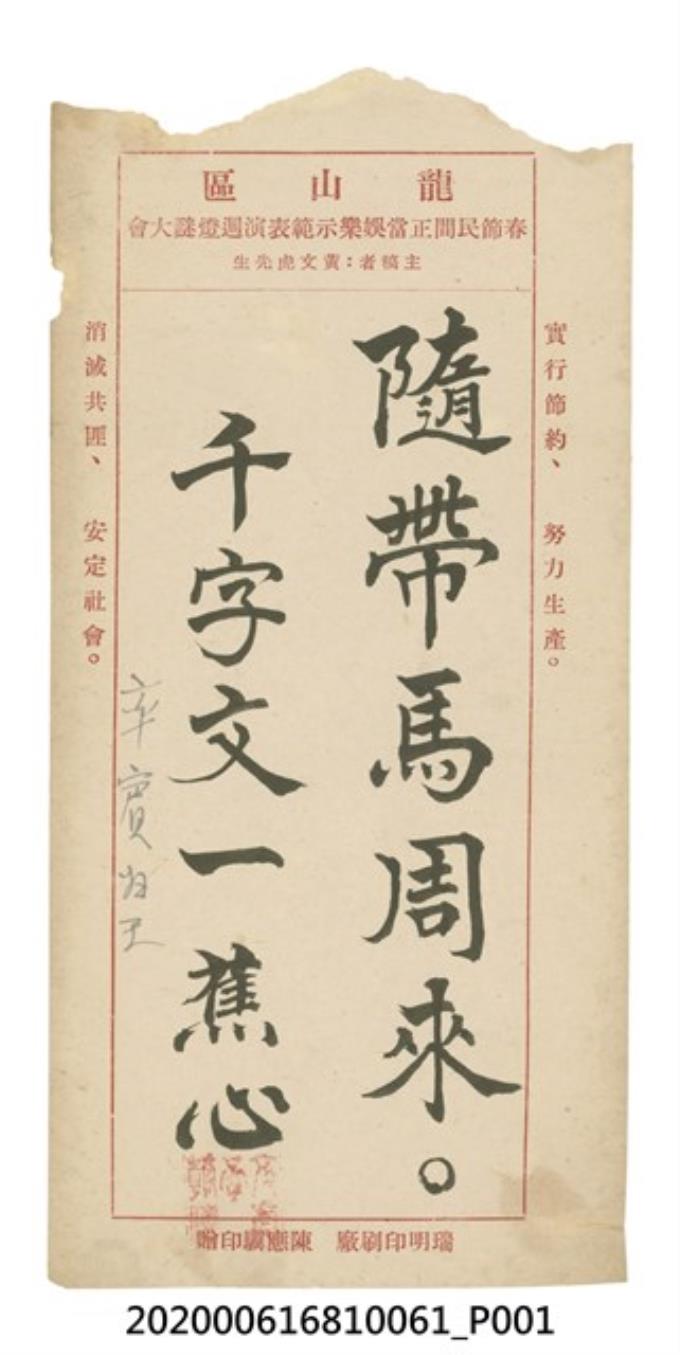 龍山區
春節民間正當娛樂示範表演週燈謎大會
主稿者：黃文虎先生
實行節約、努力生產。
隨帶馬周來。
千字文一蕉心
消滅共匪、安定社會。
率賓歸王
瑞明印刷廠 陳應驥印贈
202000616810061_P001